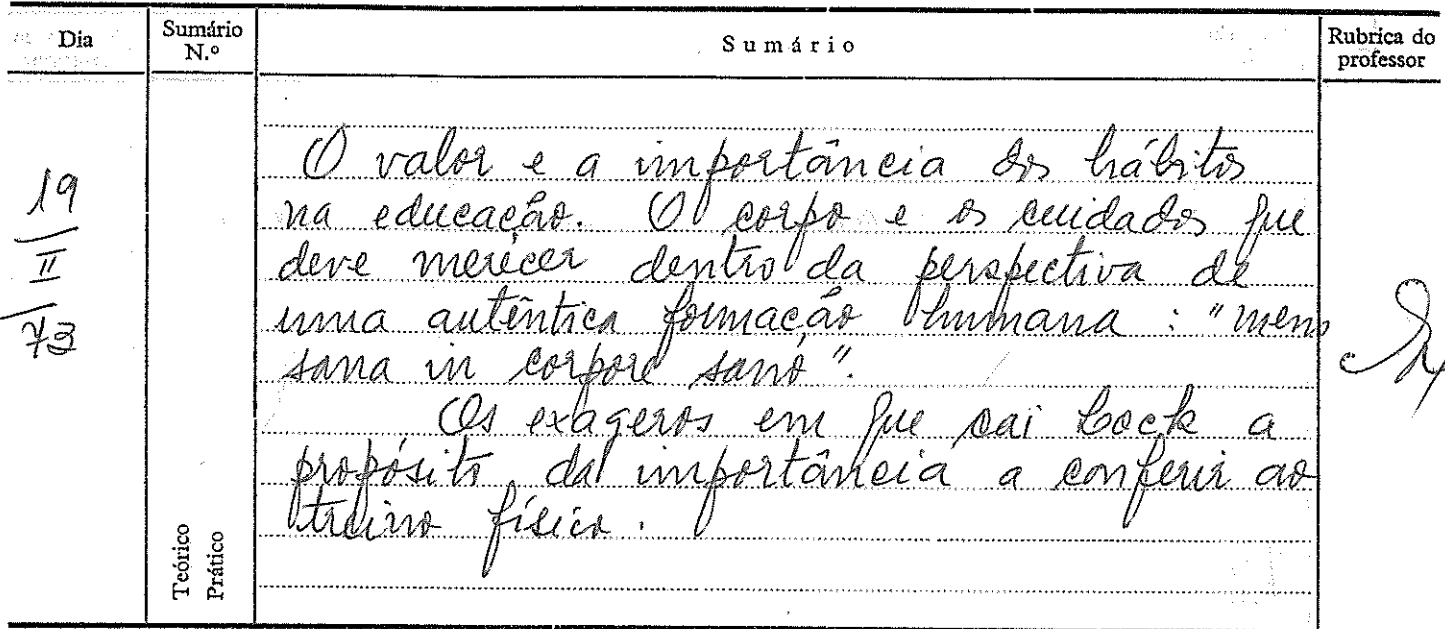 Dia
Sumário
N.º
Sumário
Rubrica do
professor
19
II
73
O valor e a importância dos hábitos
na educação. O corpo e os cuidados que
deve merecer dentro da perspectiva de
uma autêntica formação humana : "mens
sana in corpore sano".
Os exageros em que cai Lock a
propósito da importância a conferir ao
treino físico.
Teórico
Prático